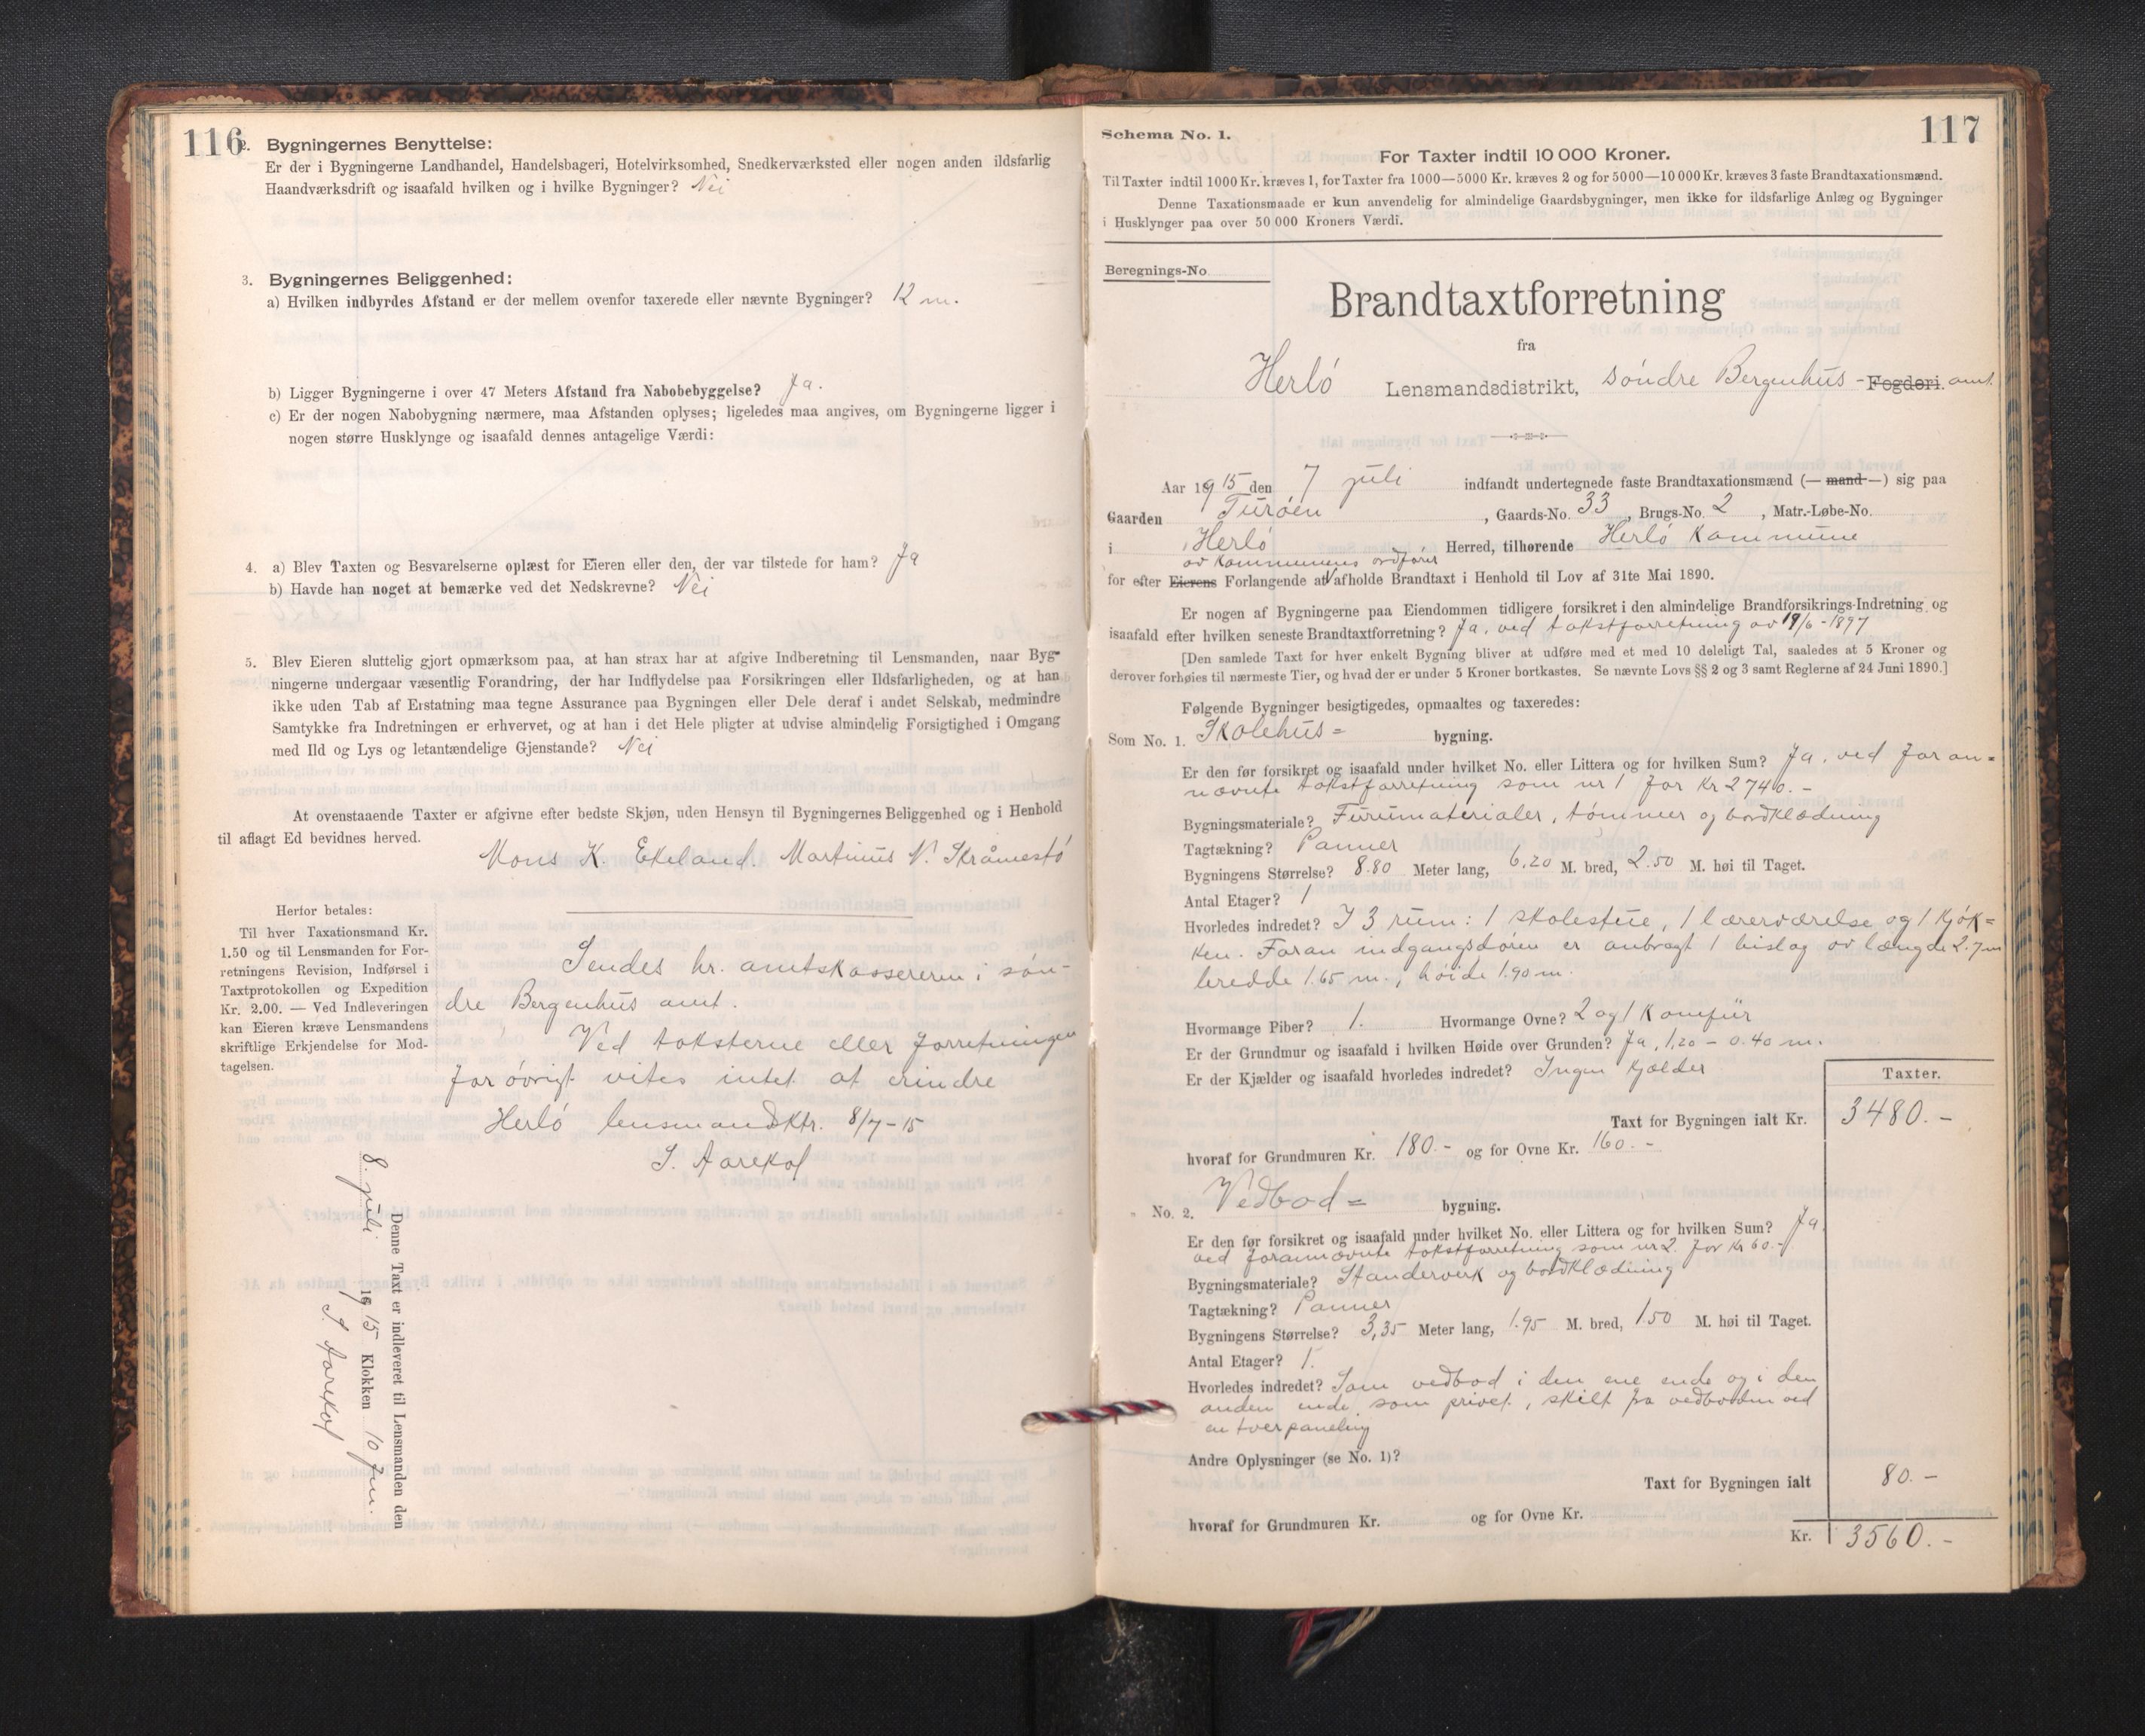 116
2. Bygningernes Benyttelse:
Er der i Bygningerne Landhandel, Handelsbageri, Hotelvirksomhed, Snedkerværksted eller nogen anden ildsfarlig
Haandværksdrift og isaafald hvilken og i hvilke Bygninger? Nei
3. Bygningernes Beliggenhed:
a) Hvilken indbyrdes Afstand er der mellem ovenfor taxerede eller nævnte Bygninger? 12 m.
b) Ligger Bygningerne i over 47 Meters Afstand fra Nabobebyggelse? Ja.
c) Er der nogen Nabobygning nærmere, maa Afstanden oplyses; ligeledes maa angives, om Bygningerne ligger i
nogen større Husklynge og isaafald dennes antagelige Værdi:
4. a) Blev Taxten og Besvarelserne oplæst for Eieren eller den, der var tilstede for ham? Ja
b) Havde han noget at bemærke ved det Nedskrevne? Nei
5. Blev Eieren sluttelig gjort opmærksom paa, at han strax har at afgive Indberetning til Lensmanden, naar Byg-
ningerne undergaar væsentlig Forandring, der har Indflydelse paa Forsikringen eller Ildsfarligheden, og at han
ikke uden Tab af Erstatning maa tegne Assurance paa Bygningen eller Dele deraf i andet Selskab, medmindre
Samtykke fra Indretningen er erhvervet, og at han i det Hele pligter at udvise almindelig Forsigtighed i Omgang
med Ild og Lys og letantændelige Gjenstande? Nei
At ovenstaaende Taxter er afgivne efter bedste Skjøn, uden Hensyn til Bygningernes Beliggenhed og i Henhold
til aflagt Ed bevidnes herved.
Mons K. Ekeland. Martinus N. Skråmestø
Herfor betales:
Til hver Taxationsmand Kr.
1.50 og til Lensmanden for For-
retningens Revision, Indførsel i
Taxtprotokollen og Expedition
Kr. 2.00. — Ved Indleveringen
kan Eieren kræve Lensmandens
skriftlige Erkjendelse for Mod-
tagelsen.
Sendes hr. amtskassereren i søn-
dre Bergenhus amt.
Ved taksterne eller forretningen
forøvrigt vites intet at erindre
Herlø lensmandktr. 8/7-15
S. Aarekol
Denne Taxt er indleveret til Lensmanden den
8. juli 1915 Klokken 10 fm.
S. Aarekol
117
Schema No. 1.
For Taxter indtil 10 000 Kroner.
Til Taxter indtil 1000 Kr. kræves 1, for Taxter fra 1000—5000 Kr. kræves 2 og for 5000—10 000 Kr. kræves 3 faste Brandtaxationsmænd.
Denne Taxationsmaade er kun anvendelig for almindelige Gaardsbygninger, men ikke for ildsfarlige Anlæg og Bygninger
i Husklynger paa over 50 000 Kroners Værdi.
Beregnings-No
Brandtaxtforretning
fra
Herlø Lensmandsdistrikt, søndre Bergenhus - Fogderi. amt.
Aar 1915 den 7 juli indfandt undertegnede faste Brandtaxationsmænd (— mand —) sig paa
Gaarden Turøen, Gaards-No. 33, Brugs-No. 2, Matr.-Løbe-No.
i Herlø Herred, tilhørende Herlø Kommune
av Kommunens ordfører
for efter Eierens Forlangende at afholde Brandtaxt i Henhold til Lov af 31te Mai 1890.
Er nogen af Bygningerne paa Eiendommen tidligere forsikret i den almindelige Brandforsikrings-Indretning og
isaafald efter hvilken seneste Brandtaxtforretning? Ja, ved takstforretning av 19/6-1897
[Den samlede Taxt for hver enkelt Bygning bliver at udføre med et med 10 deleligt Tal, saaledes at 5 Kroner og
derover forhøies til nærmeste Tier, og hvad der er under 5 Kroner bortkastes. Se nævnte Lovs §§ 2 og 3 samt Reglerne af 24 Juni 1890.]
Følgende Bygninger besigtigedes, opmaaltes og taxeredes:
Som No. 1. Skolehus= bygning.
Er den før forsikret og isaafald under hvilket No. eller Littera og for hvilken Sum? Ja, ved foran=
nævnte takstforretning som nr 1 for Kr 2740.-
Bygningsmateriale? Furumaterialer, tømmer og bordklædning
Tagtækning? Panner
Bygningens Størrelse? 8.80 Meter lang, 6.20 M. bred, 2.50 M. høi til Taget.
Antal Etager? 1
Hvorledes indredet? I 3 rum: 1 skolestue, 1 lærerværelse og 1 kjøk=
ken. Foran indgangsdøren er anbragt 1 bislag av længde 2.7 m
bredde 1.65 m., høide 1.90 m.
Hvormange Piber? 1. Hvormange Ovne? 2 og 1 Komfür
Er der Grundmur og isaafald i hvilken Høide over Grunden? Ja, 1.20 - 0.40 m.
Er der Kjælder og isaafald hvorledes indredet? Ingen kjælder
Taxter.
Taxt for Bygningen ialt Kr. 3480.-
hvoraf for Grundmuren Kr. 180.- og for Ovne Kr. 160.-
" No. 2. Vedbod= bygning.
Er den før forsikret og isaafald under hvilket No. eller Littera og for hvilken Sum? Ja,
ved forannævnte takstforretning som nr 2. for Kr 60.-
Bygningsmateriale? Standerverk og bordklædning
Tagtækning? Panner
Bygningens Størrelse? 3,35 Meter lang, 1.95 M. bred, 1.50 M. høi til Taget.
Antal Etager? 1.
Hvorledes indredet? Som vedbod i den ene ende og i den
anden ende som privet, skilt fra vedboden ved
en tverpaneling
Andre Oplysninger (se No. 1)?
Taxt for Bygningen ialt 80.-
hvoraf for Grundmuren Kr. og for Ovne Kr.
Kr. 3560.-